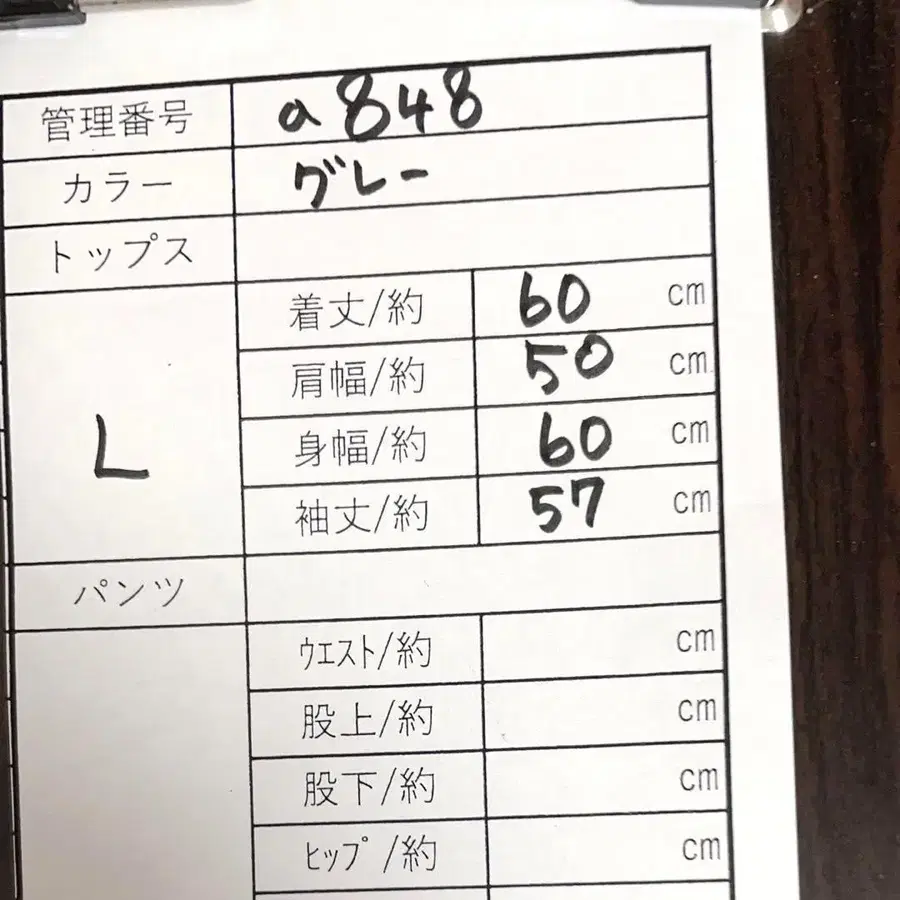 管理番号 a848
カラー グレー
トップス
L
着丈/約 60 cm
肩幅/約 50 cm
身幅/約 60 cm
袖丈/約 57 cm
パンツ
ウエスト/約 cm
股上/約 cm
股下/約 cm
ヒップ/約 cm